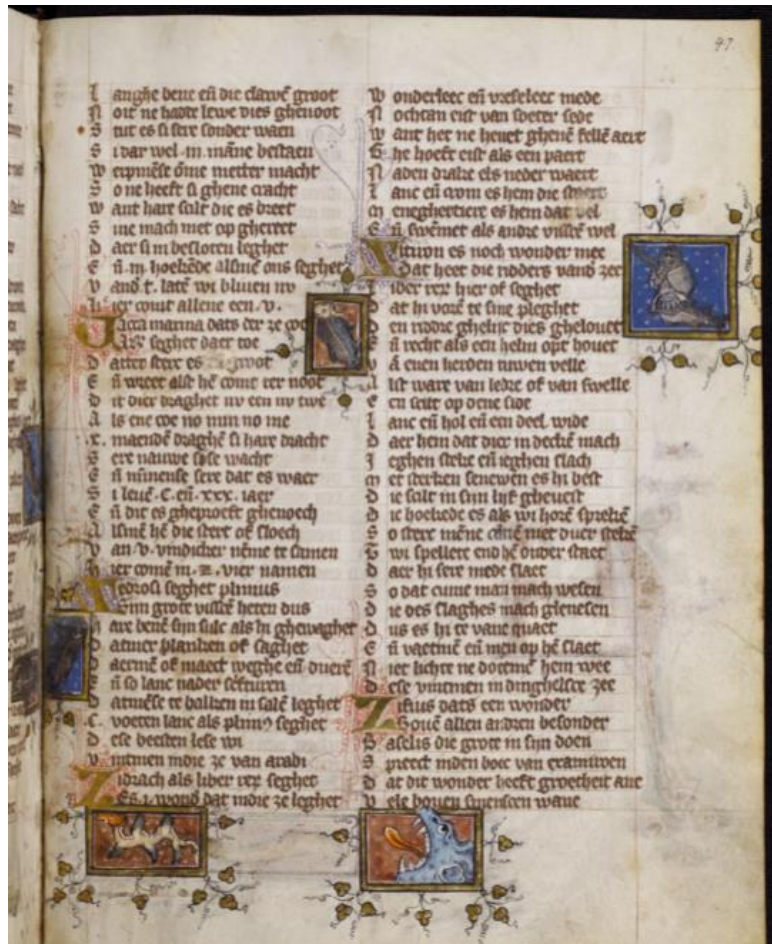 47.
L anghe bene en̄ die clawē groot
N oit ne hadde lewe dies ghenoot
S tut es si sere sonder waen
S i dar wel .m. māne bestaen
W
S o ne heeft si ghene cracht
W ant hare scilt die es breet
S ine mach met op ghereet
D aer si in besloten leghet
E n̄ .m. hoekede alsmē ons seghet
V and .t. latē wi bliuen nv
H ier comt allene een .v.
Z acca marina dats der ze coe
seghet daer toe
D attet stere es groot
E n̄ wreet alst hē comt ter noot
D it dier draghet nv een nv twe
A ls ene coe no min no me
.x. maendē draghē si hare dracht
S ere nauwe wacht
E n̄ mīnense sere dat es waer
S i leuē .C. en̄ .xxx. iaer
E n̄ dit es gheproeft ghenoech
A lsmē hē die stert of sloech
V an .v. vindicker nēme te samen
H ier comē in .z. vier namen
seghet plinius
Sijn grote visscē heten dus
H are benē sijn sulc als hi ghewaghet
D atmer planken of saghet
D aermē of maect weghe en̄ duerē
E n̄ so lanc nader
D atmēse te balken in salē leghet
.C. voeten lanc als plini9 seghet
D ese beesten lese wi
V intmen indie ze van arabi
Z idrach als liber rer seghet
Es .i. wond dat indie ze leghet
W onderleec en̄ vreseleec mede
N ochtan eist van soeter sede
W ant het ne heuet ghenē fellē aert
G he hoeft eist als een paert
N aden drake els neder waert
L anc en̄ crom es hem die steert
M eneghertiere es hem dat vel
E n̄ swēmet als andre visscē wel
Z itiron es noch wonder mee
Dat heet die ridders vand zee
L iber rer hier of seghet
D at hi vorē te sine pleghet
E en riddre ghelijc dies ghelouet
E n̄ recht als een helm opt houet
V ā enen herden ruwen velle
A lst ware van ledre of van swelle
E en scilt op dene side
L anc en̄ hol en̄ een deel wide
D aer hem dat dier in deckē mach
J eghen steke en̄ ieghen slach
M et sterken senewen es hi best
D ie scilt in sijn lijf gheuest
D ie hoekede es als wi horē sprekē
S o stere mēne cānē niet duer stekē
T wi spellete end hē onder staet
D aer hi sere mede slaet
S o dat cume man mach wesen
D ie des slaghes mach ghenesen
D us es hi te vane quaet
E n̄ vaetmē en̄ men op hē slaet
N iet lichte ne doetmē hem wee
D ese vintmen in dinghelsce zee
Z ifius dats een wonder
Bouē allen andren besonder
B aselis die grote in sijn doen
S preect inden boec van examiroen
D at dit wonder heeft groetheit ane
V ele bouen smenscen wane